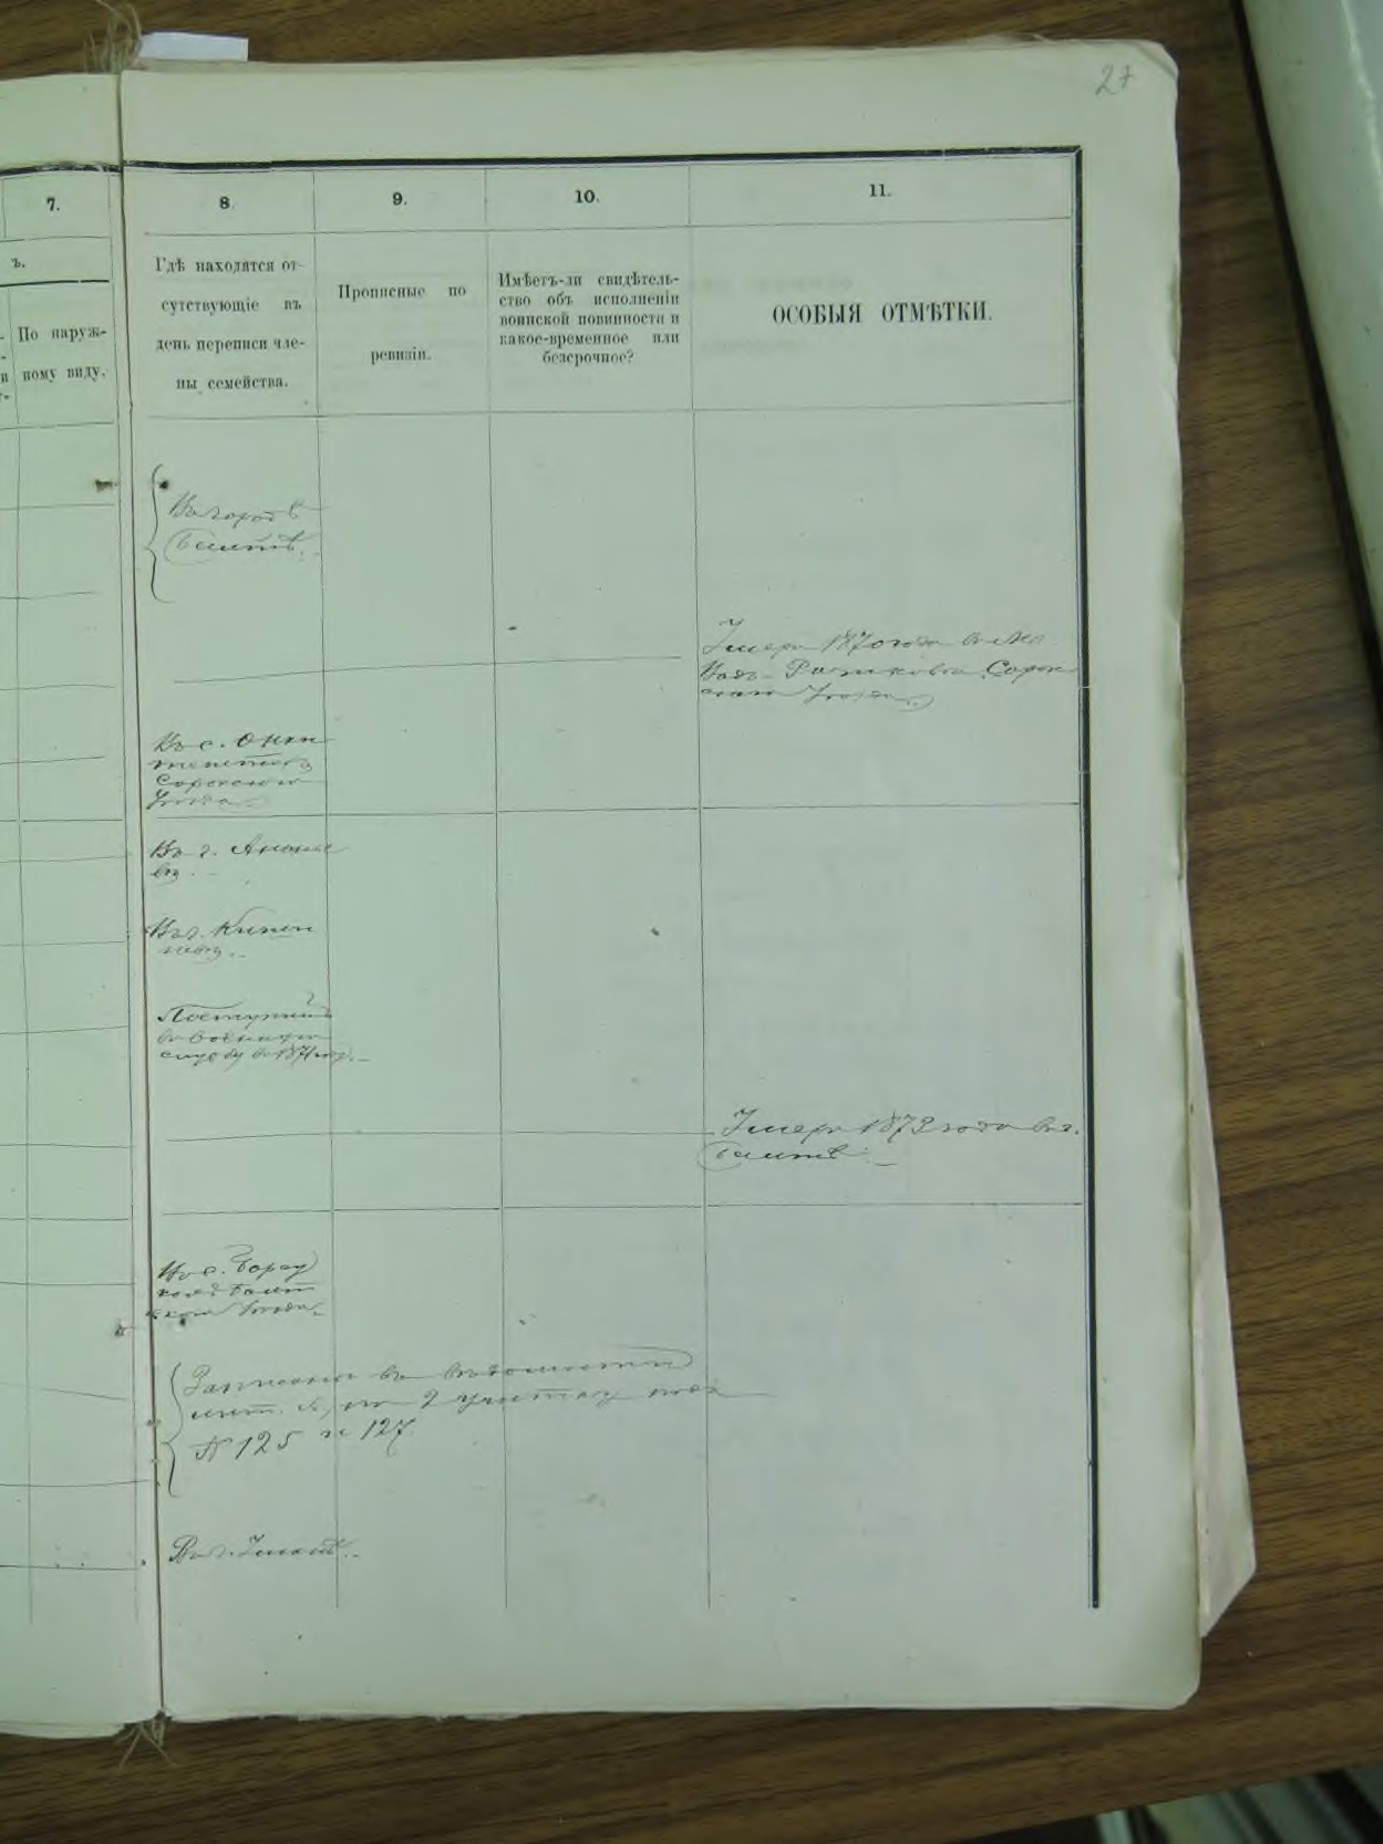 27
7.
8.
9.
10.
11.
ъ.
По наруж-
ному виду.
Гдѣ находятся от-
сутствующіе въ
день переписи чле-
ны семейства.
Прописные по
ревизіи.
Имѣетъ-ли свидѣтель-
ство объ исполненіи
воинской повинности и
какое-временное или
безсрочное?
ОСОБЫЯ ОТМѢТКИ.
Въ городѣ
Балтѣ.
Умеръ 1870 года въ
Вадъ-Рашкова Сорок
скаго уѣзда
Въ с.
Сорокскаго
уѣзда
Въ г. Ананье
вѣ.
Въ г. Кишин
невѣ.
Поступилъ
въ военную
службу въ 1871 году.
Умеръ 1873 года въ г.
Балтѣ.
Въ с.
Балт
скаго уѣзда.
Записаны въ вѣдомости
лит. А, по 2 участку подъ
№ 125 и 127
Въ г.